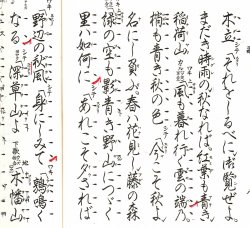 木立 それをしるべに御覧ぜよ。
まだき時雨の秋なれば、紅葉も青き
稲荷山 風も暮れ行く雲の端の。
梢も青き秋の色 今こそ秋よ
名にし負ふ。春は花見し藤の森
緑の空も影青き野山につづく
里は如何に あれこそ夕されば
野辺の秋風 身にしみて 鶉鳴く
なる 深草山よ 木幡山